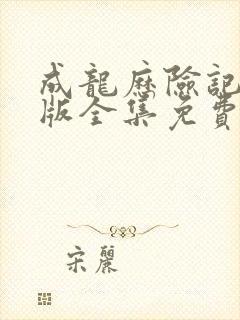 成龍歷險記
版全集免費
宋麗